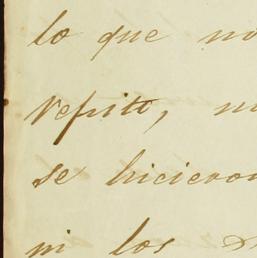 lo que no
repito, n
se hicieron
ni los